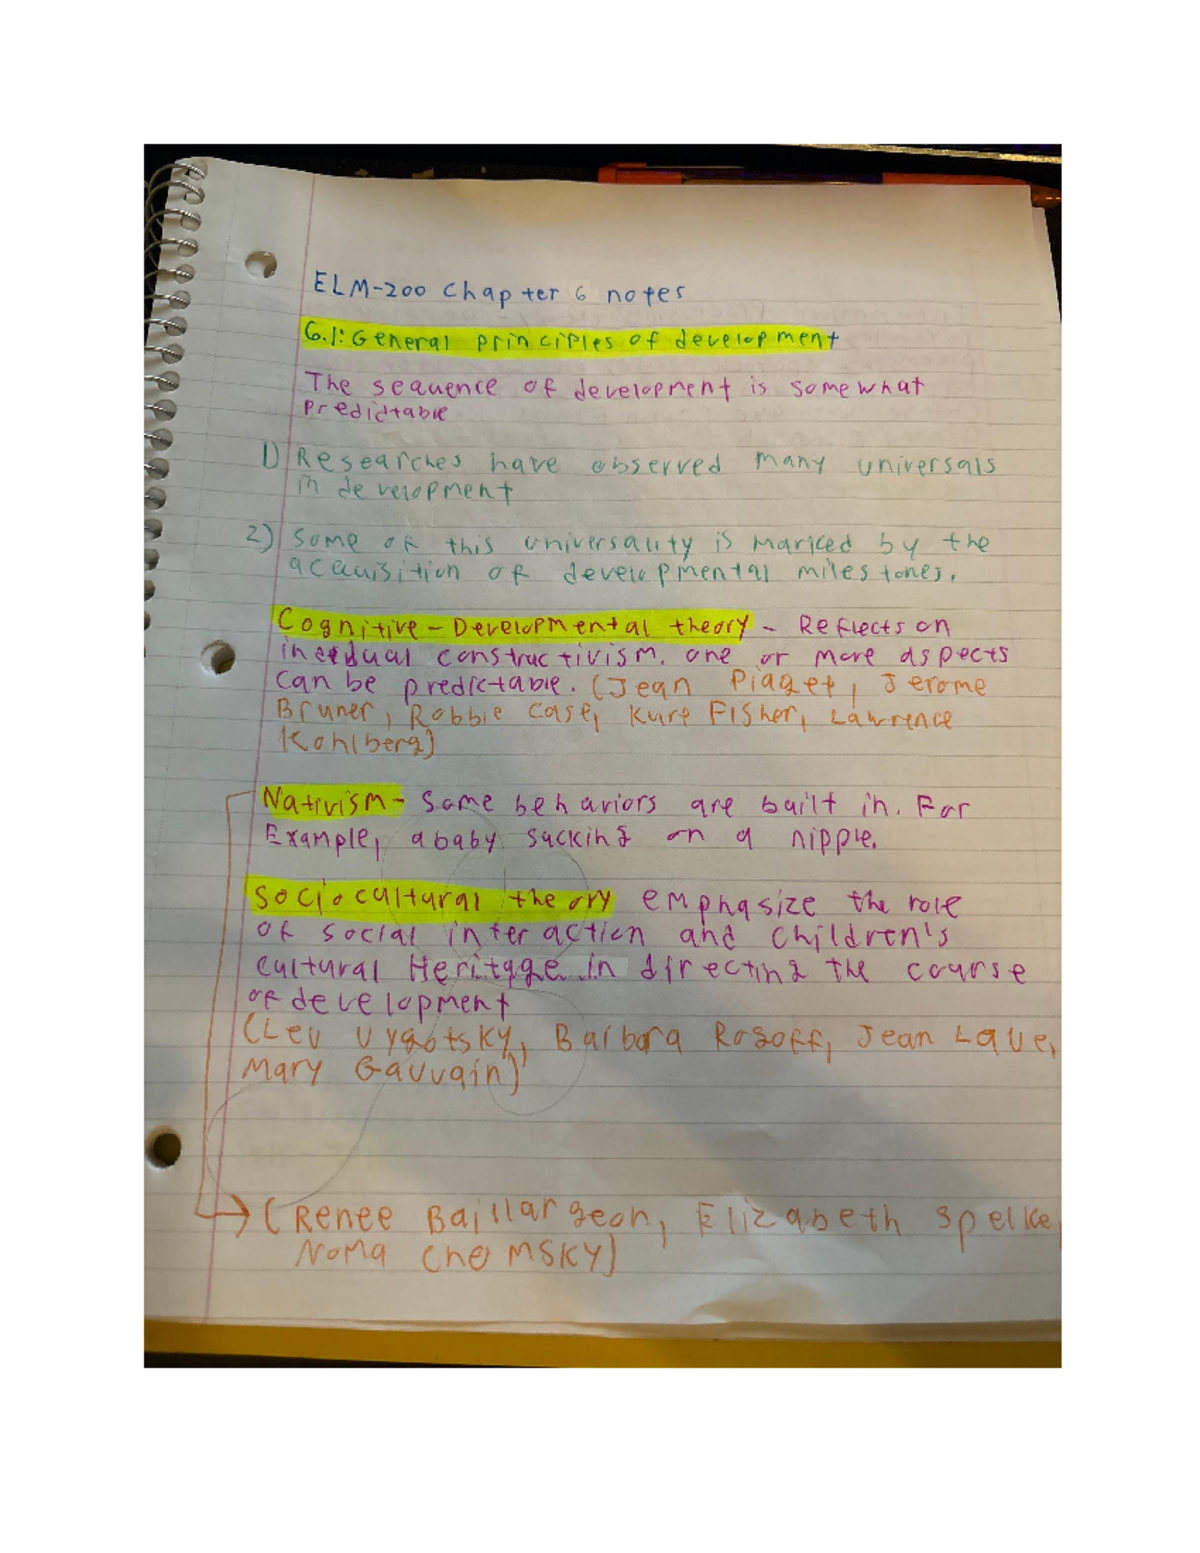 ELM-200 Chapter 6 notes
6.1: General principles of development
The sequence of development is somewhat
predidtable
1) Researches have observed many universals
in development
2) Some of this universality is marked by the
acquisition of developmental milestones.
Cognitive-Developmental theory - Reflects on
constructivism. one or more aspects
can be predictable. (Jean Piaget, Jerome
Bruner, Robbie Case, Kurt Fisher, Lawrence
Kohlberg)
Nativism- Some behaviors are built in. For
Example, a baby sucking on a nipple.
Sociocultural theory emphasize the role
of social interaction and children's
cultural Heritage in directing the course
of development
(Lev Vygotsky, Barbara Rogoff, Jean Lave,
Mary Gauvain)
(Renee Baillargeon, Elizabeth Spelke,
Noma Chomsky)